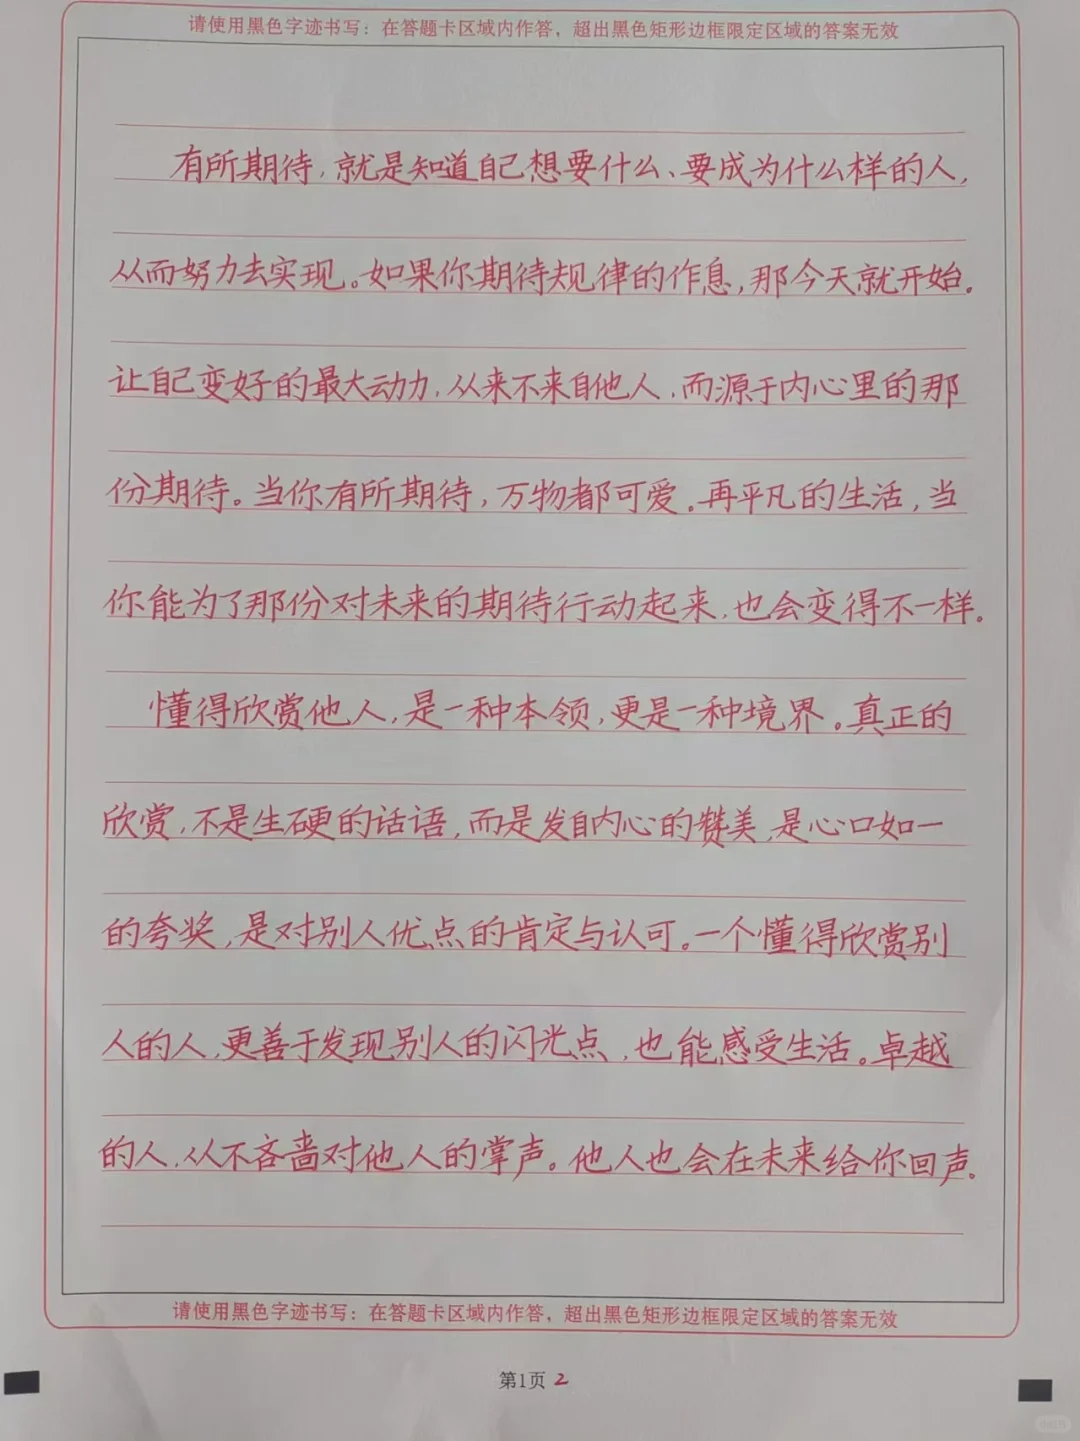 请使用黑色字迹书写：在答题卡区域内作答，超出黑色矩形边框限定区域的答案无效
有所期待，就是知道自己想要什么、要成为什么样的人，
从而努力去实现。如果你期待规律的作息，那今天就开始。
让自己变好的最大动力，从来不来自他人，而源于内心里的那
份期待。当你有所期待，万物都可爱。再平凡的生活，当
你能为了那份对未来的期待行动起来，也会变得不一样。
懂得欣赏他人，是一种本领，更是一种境界。真正的
欣赏，不是生硬的话语，而是发自内心的赞美，是心口如一
的夸奖，是对别人优点的肯定与认可。一个懂得欣赏别
人的人，更善于发现别人的闪光点，也能感受生活。卓越
的人，从不吝啬对他人的掌声。他人也会在未来给你回声。
请使用黑色字迹书写：在答题卡区域内作答，超出黑色矩形边框限定区域的答案无效
第1页 2